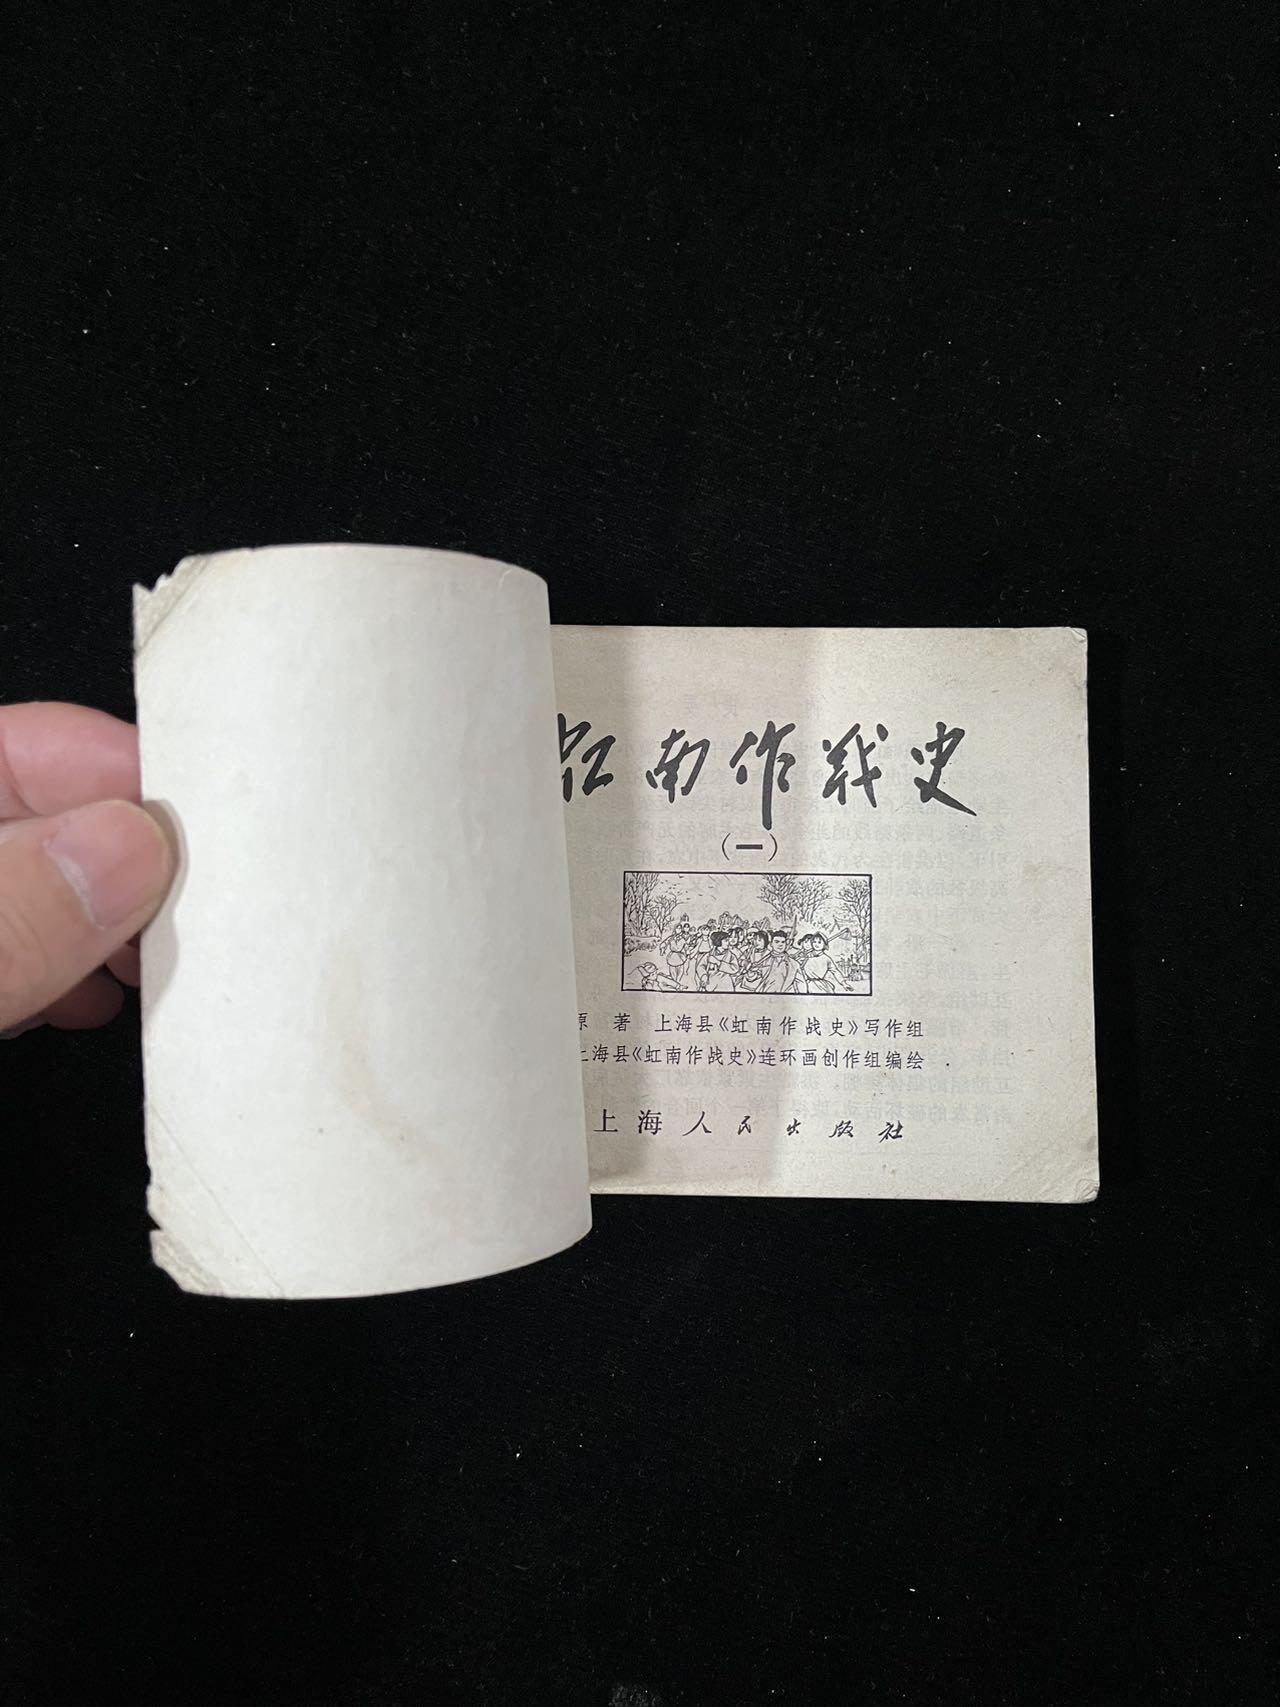 虹南作战史
（一）
原 著 上海县《虹南作战史》写作组
上海县《虹南作战史》连环画创作组编绘
上海人民出版社